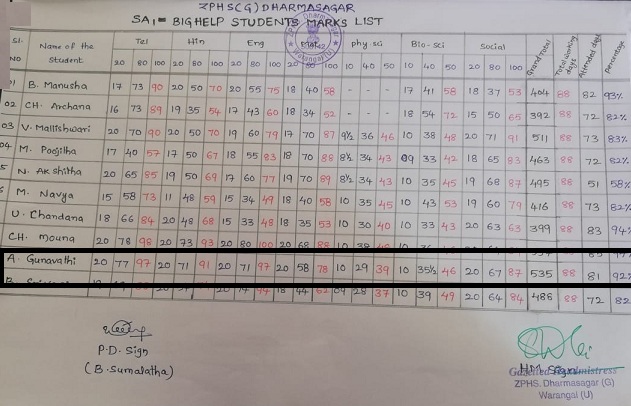 ZPHS(G) DHARMASAGAR
SA1 = BIG HELP STUDENTS MARKS LIST
Sl. NO Name of the Student Tel Hin Eng phy-sci Bio-sci Social Grand Total Total working days Attended days Percentage
20 80 100 20 80 100 20 80 100 20 80 100 10 40 50 10 40 50 20 80 100
B. Manusha 17 73 90 20 50 70 20 55 75 18 40 58 - - - 17 41 58 18 37 53 404 88 82 93%
02 CH. Archana 16 73 89 19 35 54 17 43 60 18 34 52 - - - 18 54 72 15 50 65 392 88 72 82%
03 V. Malleshwari 20 70 90 20 50 70 19 60 79 17 70 87 9½ 36 46 10 38 48 20 71 91 511 88 73 83%
04 M. Poojitha 17 40 57 17 50 67 18 55 83 18 70 88 8½ 34 43 09 33 42 18 65 83 463 88 72 82%
5 N. Akshitha 20 65 85 19 50 69 17 60 77 19 70 89 8½ 34 43 10 35 45 19 68 87 495 88 51 58%
M. Navya 15 58 73 11 48 59 15 34 49 18 40 58 10 35 45 10 43 53 19 60 79 416 88 73 82%
U. Chandana 18 66 84 20 48 68 15 33 48 18 35 53 10 30 40 10 33 43 20 63 63 399 88 83 94%
CH. Mouna 20 78 98 20 73 93 20 80 100 20 68 88 10
A. Gunavathi 20 77 97 20 71 91 20 71 97 20 58 78 10 29 39 10 35½ 46 20 67 87 535 88 81 92%
18 44 62 09 28 37 10 39 49 20 64 84 486 88 72 82
P.D. Sign
(B. Sumalatha)
Gazetted Headmistress
ZPHS. Dharmasagar (G)
Warangal (U)